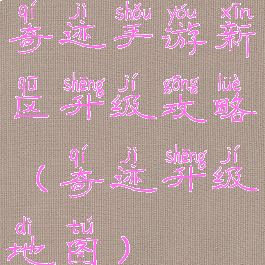 qí jì shǒu yóu xīn
奇迹手游新
qū shēng jí gōng lüè
区升级攻略
qí jì shēng jí
（奇迹升级
dì tú
地图）